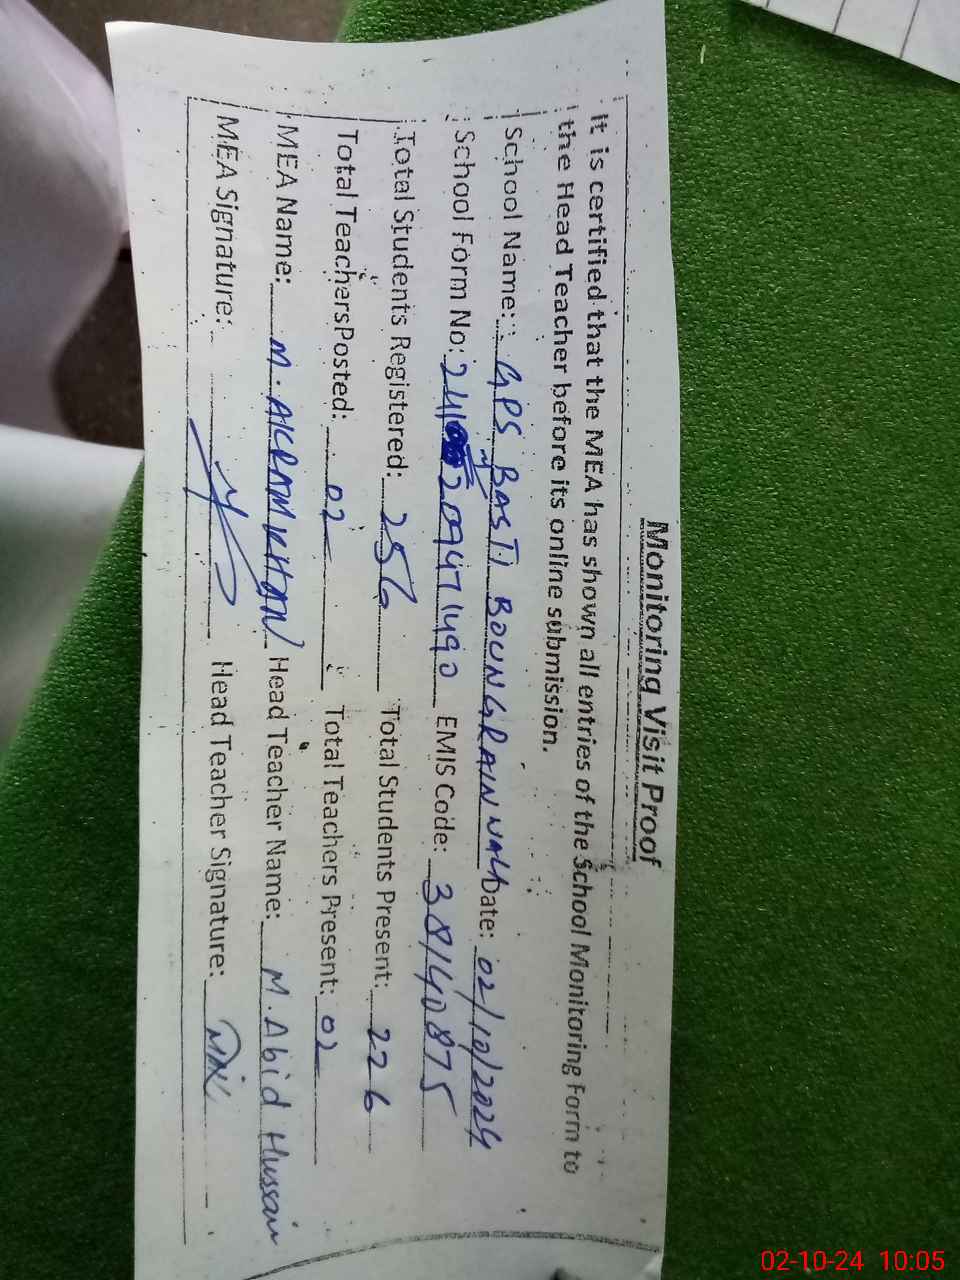 Monitoring Visit Proof
It is certified that the MEA has shown all entries of the School Monitoring Form to
the Head Teacher before its online submission.
School Name: GPS BASTI BOUNGRAIN WALA Date: 02/10/2024
School Form No: 241 20947 1490 EMIS Code: 38140875
Total Students Registered: 256 Total Students Present: 226
Total TeachersPosted: 02 Total Teachers Present: 02
MEA Name: M. AKRAM KHAN Head Teacher Name: M. Abid Hussain
MEA Signature: Head Teacher Signature:
02-10-24 10:05